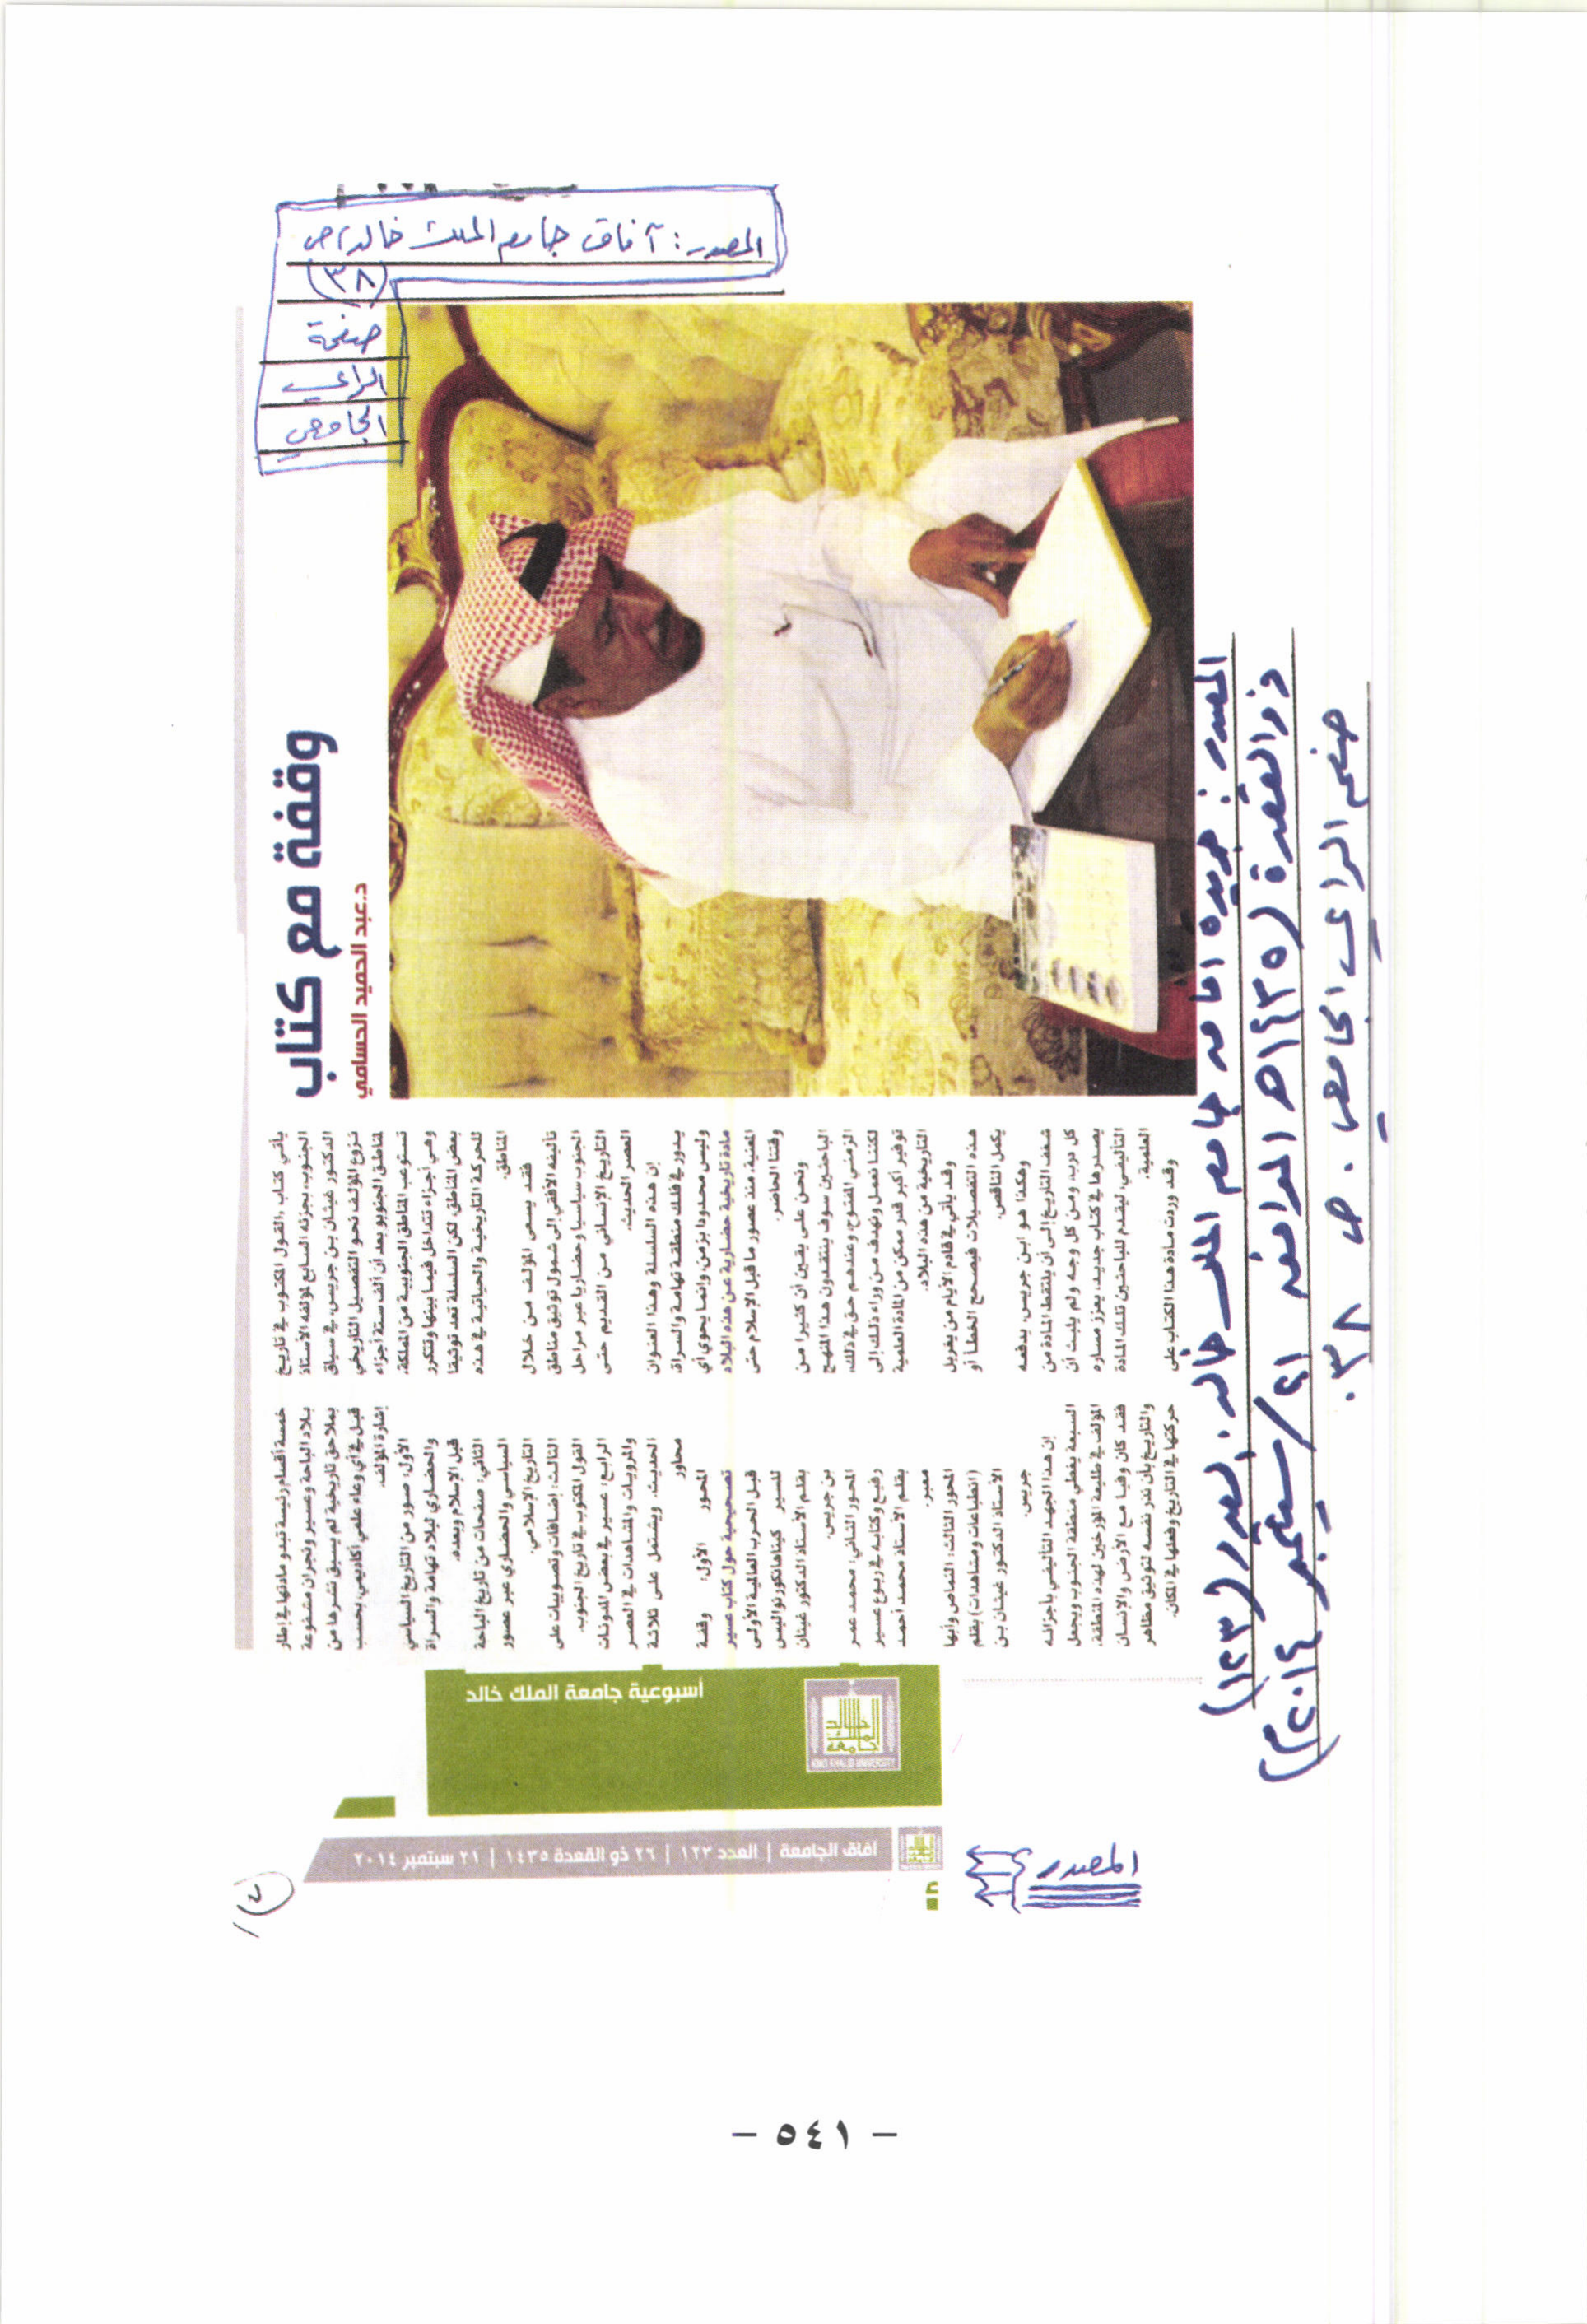 المصدر: آفاق جامعة الملك خالد، ص
(٣٨)
صفحة
الرأي
الجامعي
وقفة مع كتاب
د.عبد الحميد الحسامي
يأتي كتاب «القول المكتوب في تاريخ
الجنوب» بجزئه السابع لمؤلفه الأستاذ
الدكتور غيثان بن جريس، في سياق
نزوع المؤلف نحو التفصيل التاريخي
لمناطق الجنوب وبعد أن ألف ستة أجزاء
تستوعب المناطق الجنوبية من المملكة،
وهي أجزاء تتداخل فيما بينها وتتكرر
بعض المناطق، لكن السلسلة تعد توثيقا
للحركة التاريخية والحياتية في هذه
المناطق.
فقد يسعى المؤلف من خلال
تأليفه الأفقي إلى شمول توثيق مناطق
الجنوب سياسيا وحضاريا عبر مراحل
التاريخ الإنساني من القديم حتى
العصر الحديث.
إن هذه السلسلة وهذا العنوان
يدور في فلك منطقة تهامة والسراة،
وليس محدودا بزمن، وإنما يحوي أي
مادة تاريخية حضارية عن هذه البلاد
المعنية، منذ عصور ما قبل الإسلام حتى
وقتنا الحاضر.
ونحن على يقين أن كثيرا من
الباحثين سوف ينتقدون هذا المنهج
الزمني المفتوح، وعندهم حق في ذلك،
لكننا نعمل ونهدف من وراء ذلك إلى
توفير أكبر قدر ممكن من المادة العلمية
التاريخية من هذه البلاد.
وقد يأتي في قادم الأيام من يغربل
هذه التفصيلات فيصحح الخطأ أو
يكمل الناقص.
وهكذا هو ابن جريس، يدفعه
شغف التاريخ إلى أن يلتقط المادة من
كل درب، ومن كل وجه ولم يلبث أن
يصدرها في كتاب جديد، يعزز مساره
التأليفي، ليقدم للباحثين تلك المادة
العلمية.
وقد وردت مادة هذا الكتاب على
خمسة أقسام رئيسة تبدو مادتها في إطار
بلاد الباحة وعسير ونجران مشفوعة
بملاحق تاريخية لم يسبق نشرها من
قبل في أي وعاء علمي أكاديمي، بحسب
إشارة المؤلف.
الأول: صور من التاريخ السياسي
والحضاري لبلاد تهامة والسراة
قبل الإسلام وبعده.
الثاني: صفحات من تاريخ الباحة
السياسي والحضاري عبر عصور
التاريخ الإسلامي.
الثالث: إضافات وتصويبات على
القول المكتوب في تاريخ الجنوب.
الرابع: عسير في بعض المدونات
والمرويات والمشاهدات في العصر
الحديث. ويشتمل على ثلاثة
محاور
المحور الأول: وقفة
تصحيحية حول كتاب عسير
قبل الحرب العالمية الأولى
للسير كيناهانكورنواليس
بقلم الأستاذ الدكتور غيثان
بن جريس.
المحور الثاني: محمد عمر
رفيع وكتابه في ربوع عسير
بقلم الأستاذ محمد أحمد
معبر.
المحور الثالث: النماص وأبها
(انطباعات ومشاهدات) بقلم
الأستاذ الدكتور غيثان بن
جريس.
إن هذا الجهد التأليفي بأجزائه
السبعة يغطي منطقة الجنوب ويجعل
المؤلف في طليعة المؤرخين لهذه المنطقة،
فقد كان وفيا مع الأرض والإنسان
والتاريخ بأن نذر نفسه لتوثيق مظاهر
حركتها في التاريخ وفعلها في المكان.
أسبوعية جامعة الملك خالد
جامعة الملك خالد
KING KHALID UNIVERSITY
آفاق الجامعة | العدد ١٢٣ | ٢٦ ذو القعدة ١٤٣٥ | ٢١ سبتمبر ٢٠١٤
المصدر
المصدر: جريدة آفاق جامعة الملك خالد. العدد (١٢٣)
ذو القعدة (١٤٣٥هـ الموافق ٢١/سبتمبر ٢٠١٤م)
صفحة الرأي الجامعي. ص ٣٨.
- ٥٤١ -